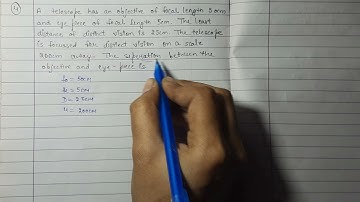 4
A telescope has an objective of focal length 50cm
and eye piece of focal length 5cm. The least
distance of distict vision is 25cm. The telescope
is focussed for distinct vision on a scale
200cm away. The seperation between the
objective and eye-piece is
fo = 50cm
fe = 5cm
D = 25cm
u = 200cm